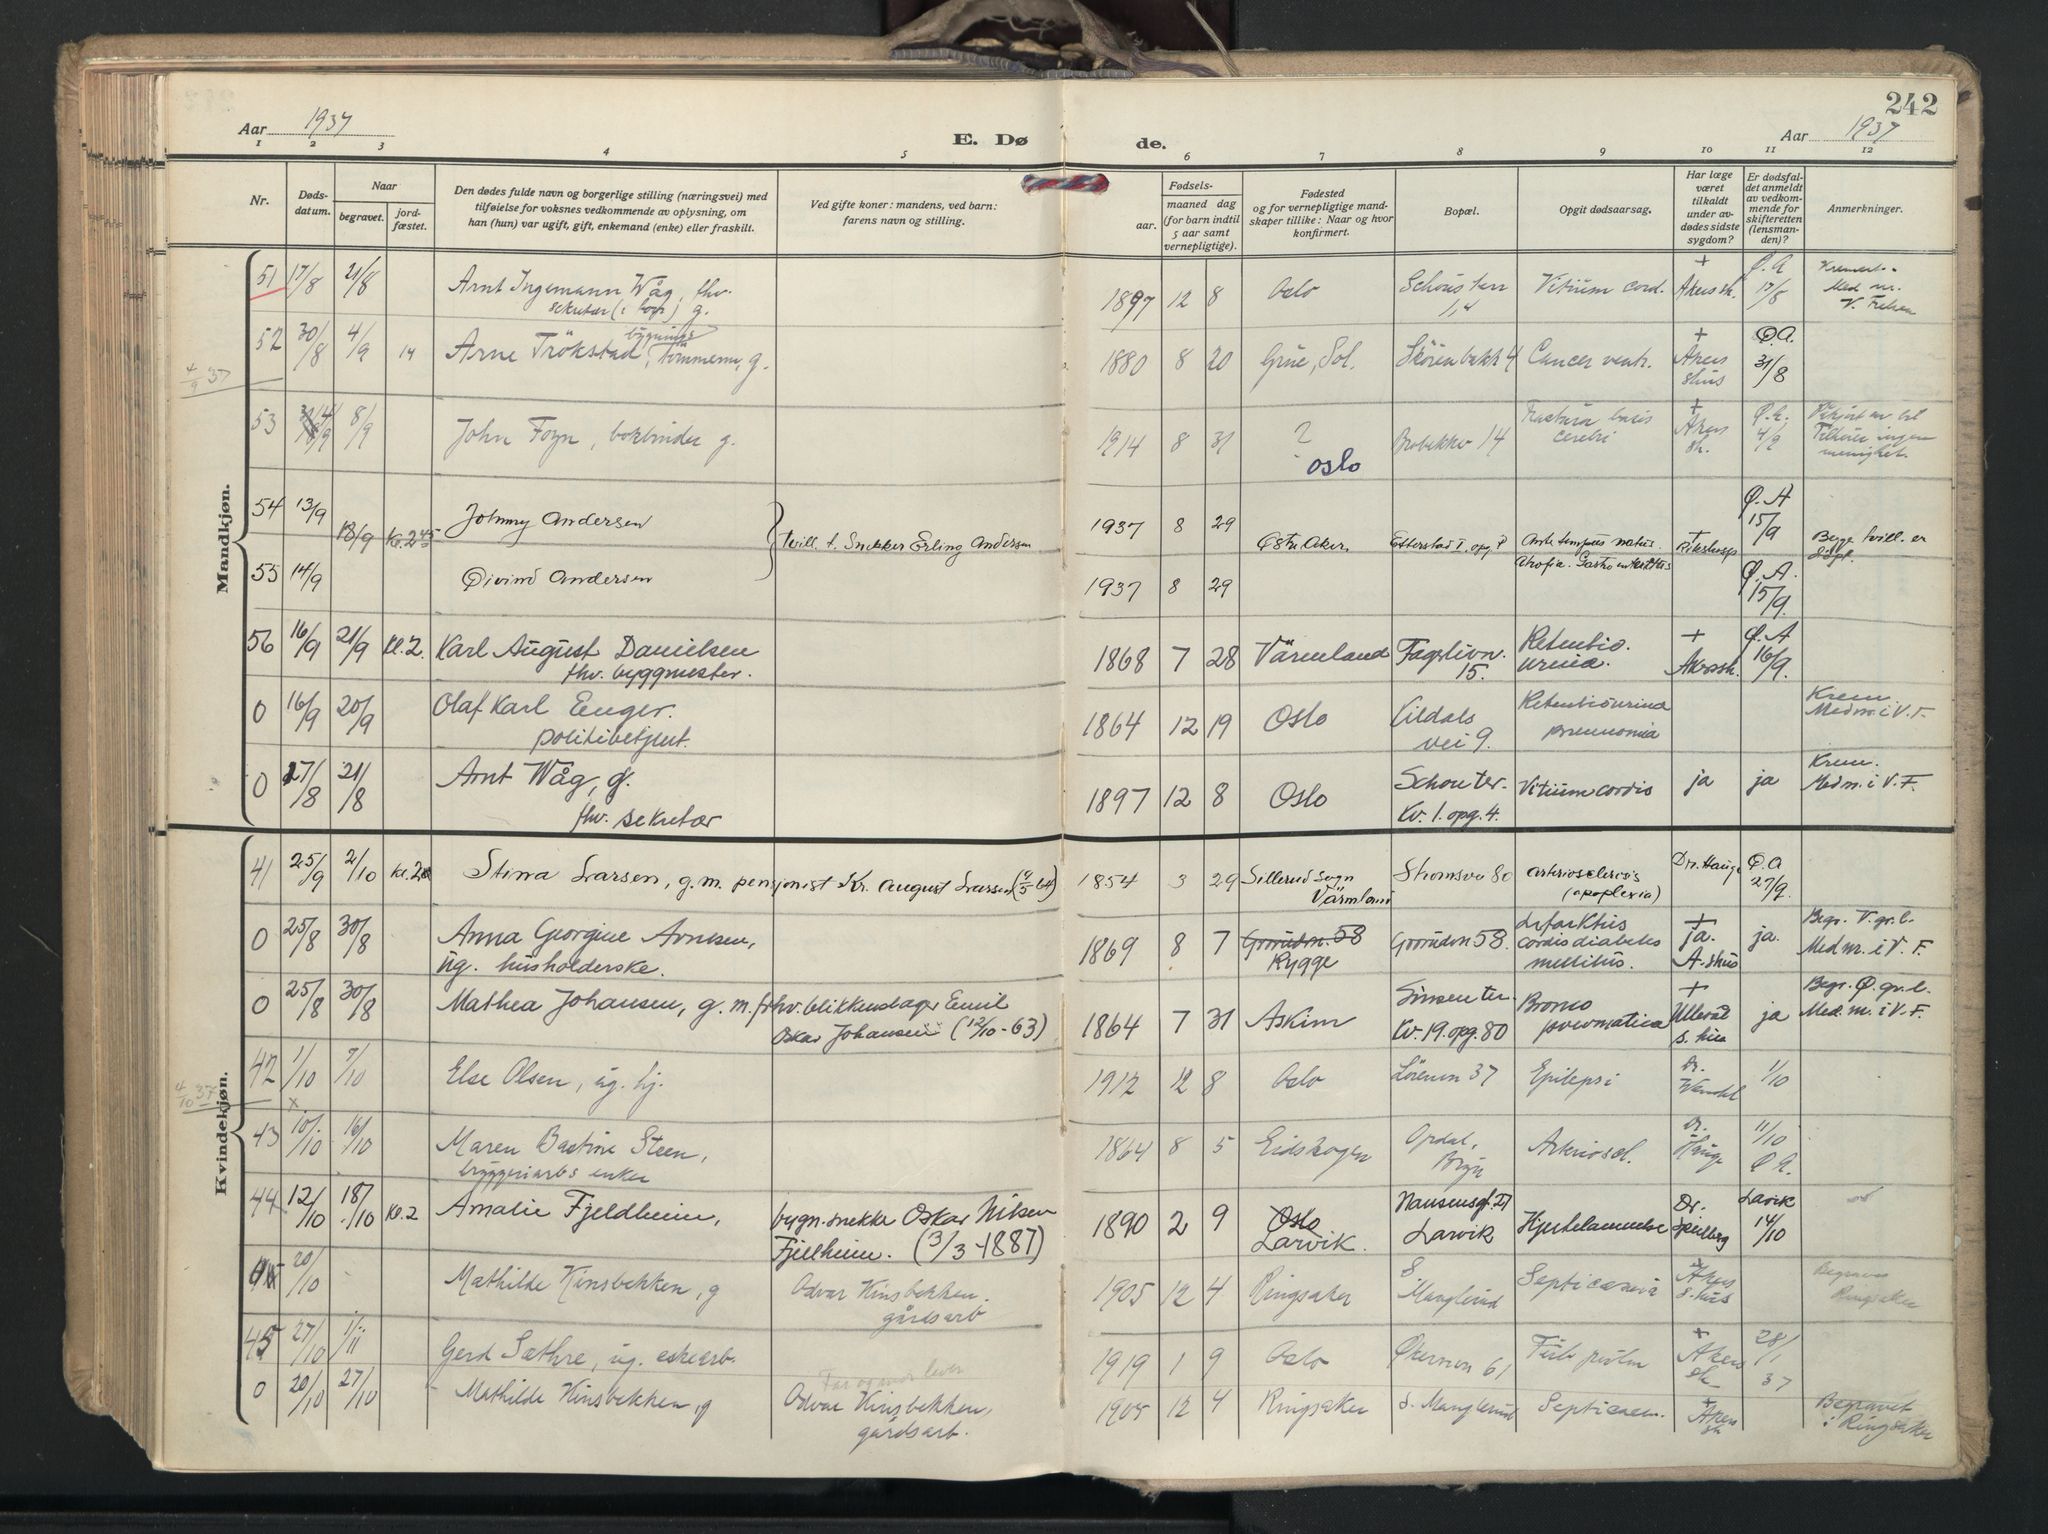 242
Aar 1937
E. Dø de.
Aar 1937
1 2 3 4 5 6 7 8 9 10 11 12
Nr.
Døds-
datum.
Naar
begravet.
jord-
fæstet.
Den dødes fulde navn og borgerlige stilling (næringsvei) med
tilføielse for voksnes vedkommende av oplysning, om
han (hun) var ugift, gift, enkemand (enke) eller fraskilt.
Ved gifte koner: mandens, ved barn:
farens navn og stilling.
Fødsels-
aar. maaned dag
(for barn indtil
5 aar samt
vernepligtige).
Fødested
og for vernepligtige mand-
skaper tillike: Naar og hvor
konfirmert.
Bopæl.
Opgit dødsaarsag.
Har læge
været
tilkaldt
under av-
dødes sidste
sygdom?
Er dødsfal-
det anmeldt
av vedkom-
mende for
skifteretten
(lensman-
den)?
Anmerkninger.
Mandkjøn.
51 17/8 21/8 Arnt Ingemann Wåg, fhv. 1897 12 8 Oslo Vitium cord. + Akersh. Ø.A 17/8
g.
52 30/8 4/9 14 Arne Trökstad, bygnings tömmerm, g. 1880 8 20 Grue, Sol. Cancer ventr. + Akers hus Ø.A. 31/8
4/9 37
53 4/9 8/9 John Foyn, bokbinder g. 1914 8 31 ? Oslo Brobekkv 14 Fractura basis cerebri + Akers sh. 4/9
menighet.
54 13/9 Johnny Andersen 1937 8 29 Ø.A 15/9
18/9 Kl. 2 45 tvill. t. Snekker Erling Andersen Østre Aker. Etterstad I. opg. Ante tempus natus. + Rikshosp Begge tvill. er
døpt.
55 14/9 Øivind Andersen 1937 8 29 Atrofia. Gastroenteritis Ø.A. 15/9
56 16/9 21/9 Kl. 2. Karl August Danielsen 1868 7 28 Värmland 15. Retentio urina. + Akersh. Ø.A 16/9
fhv. byggmester.
0 16/9 20/9 Olaf Karl Enger. 1864 12 19 Oslo vei 9. pneumonia Krem.
politibetjent. Med m. i V. F.
0 17/8 21/8 Arnt Wåg, g. 1897 12 8 Oslo Schou ter. Kv. 1. opg. 4. Vitium cordis ja ja Krem.
fhv. sekretær Med m. i V. F.
Kvindekjøn.
41 25/9 2/10 Stina Larsen, g. m. pensjonist Kr. August Larsen 1854 3 29 Sillerud sogn Värmland Strømsv 80 arteriosclerosis (apoplexia) Dr. Hauge Ø.A 27/9
0 25/8 30/8 Anna Georgine Arnesen, 1869 8 7 Grorudvn. 58 Rygge Grorudvn 58. Infarktus cordis diabetes mellitus. + ja. A. shus ja. Begr. V. gr. l.
ug. husholderske. Med m. i V. F.
0 25/8 30/8 Mathea Johansen, g. m. fhv. blikkenslager Emil 1864 7 31 Askim Sinsen ter. Kv. 19. opg. 80 + Ullevål s. hus ja Begr. Ø. gr. l.
Oskar Johansen (12/10-63) Med. m. i V. F.
42 1/10 7/10 Else Olsen, ug. hj. 1912 12 8 Oslo Lörenvn 37 Epilepsi Dr. 1/10
4/10 37
43 10/10 16/10 Maren Bastine Steen, 1864 8 5 Eidskogen Opdal, Bryn Arteriosel. Dr. Hauge 11/10 Ø A.
bryggeriarbs enke
44 12/10 18/10 Kl. 2 Amalie Fjeldheim, bygn. snekke Oskar Nilsen 1890 2 9 Oslo Larvik. Nansensgt. 27 Larvik Hjertelammelse Dr. Larvik 14/10
Fjellheim. (3/3-1887)
45 20/10 Mathilde Kinsbekken, g Odvar Kinsbekken. 1905 12 4 Ringsaker S. Manglerud Septicæmia + Akers s. hus Begraves
gårdsarb Ringsaker
45 27/10 1/11 Gerd Sæthre, ug. eskearb. 1919 1 9 Oslo Økernvn 61 + Akers sh 28/1 37
Far og mor lever
0 20/10 27/10 Mathilde Kinsbekken, g Odvar Kinsbekken, 1905 12 4 Ringsaker S. Manglerud Septicaem. + Akers sh Begravet
gårdsarb. i Ringsaker